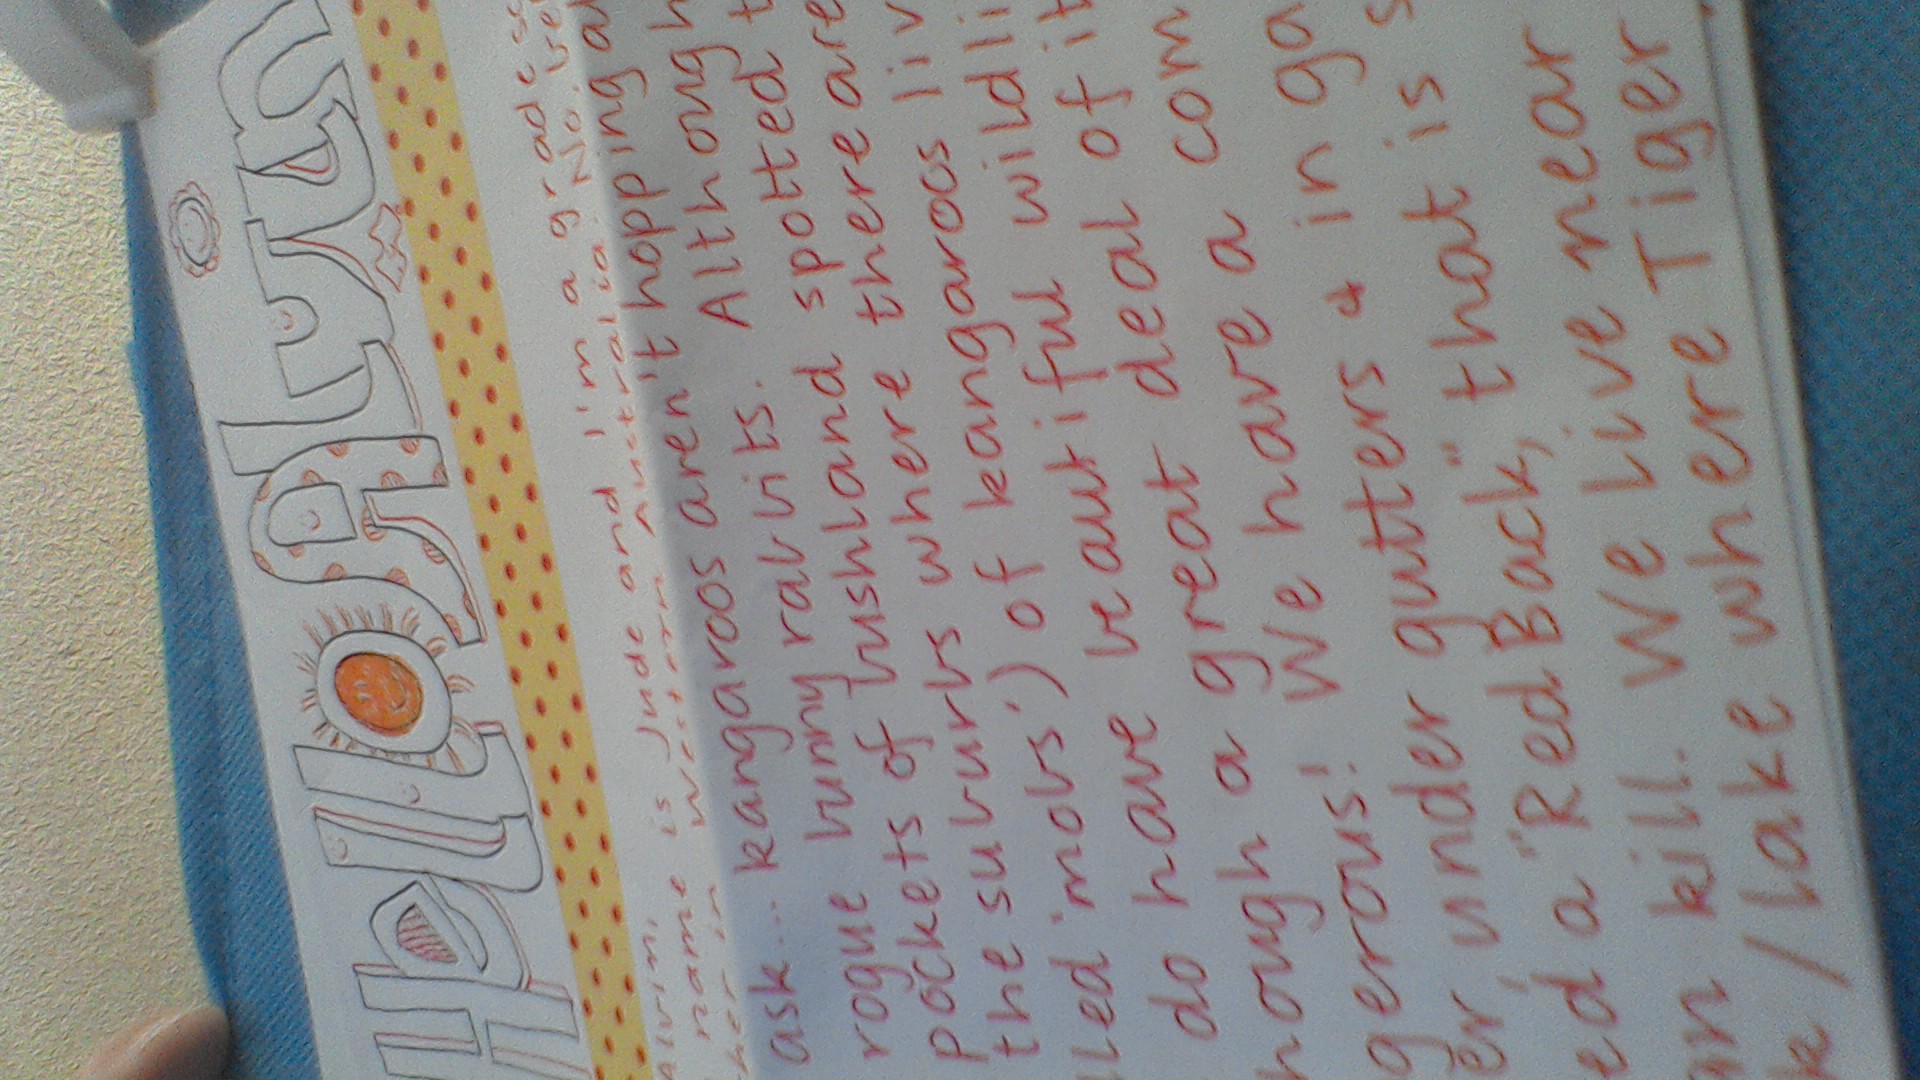 Hello
name is Jude and I'm a grade
in Western Australia. No.
ask... kangaroos aren't hopping
rogue bunny rabbits. Although
pockets of bushland spotted
the suburbs where there are
led 'mobs') of kangaroos liv
do have beautiful wildli
hough a great deal of it
gerous! We have a com
er, under gutters & in ga
ed a "Red Back," that is
n kill. We live near
/ lake where Tiger